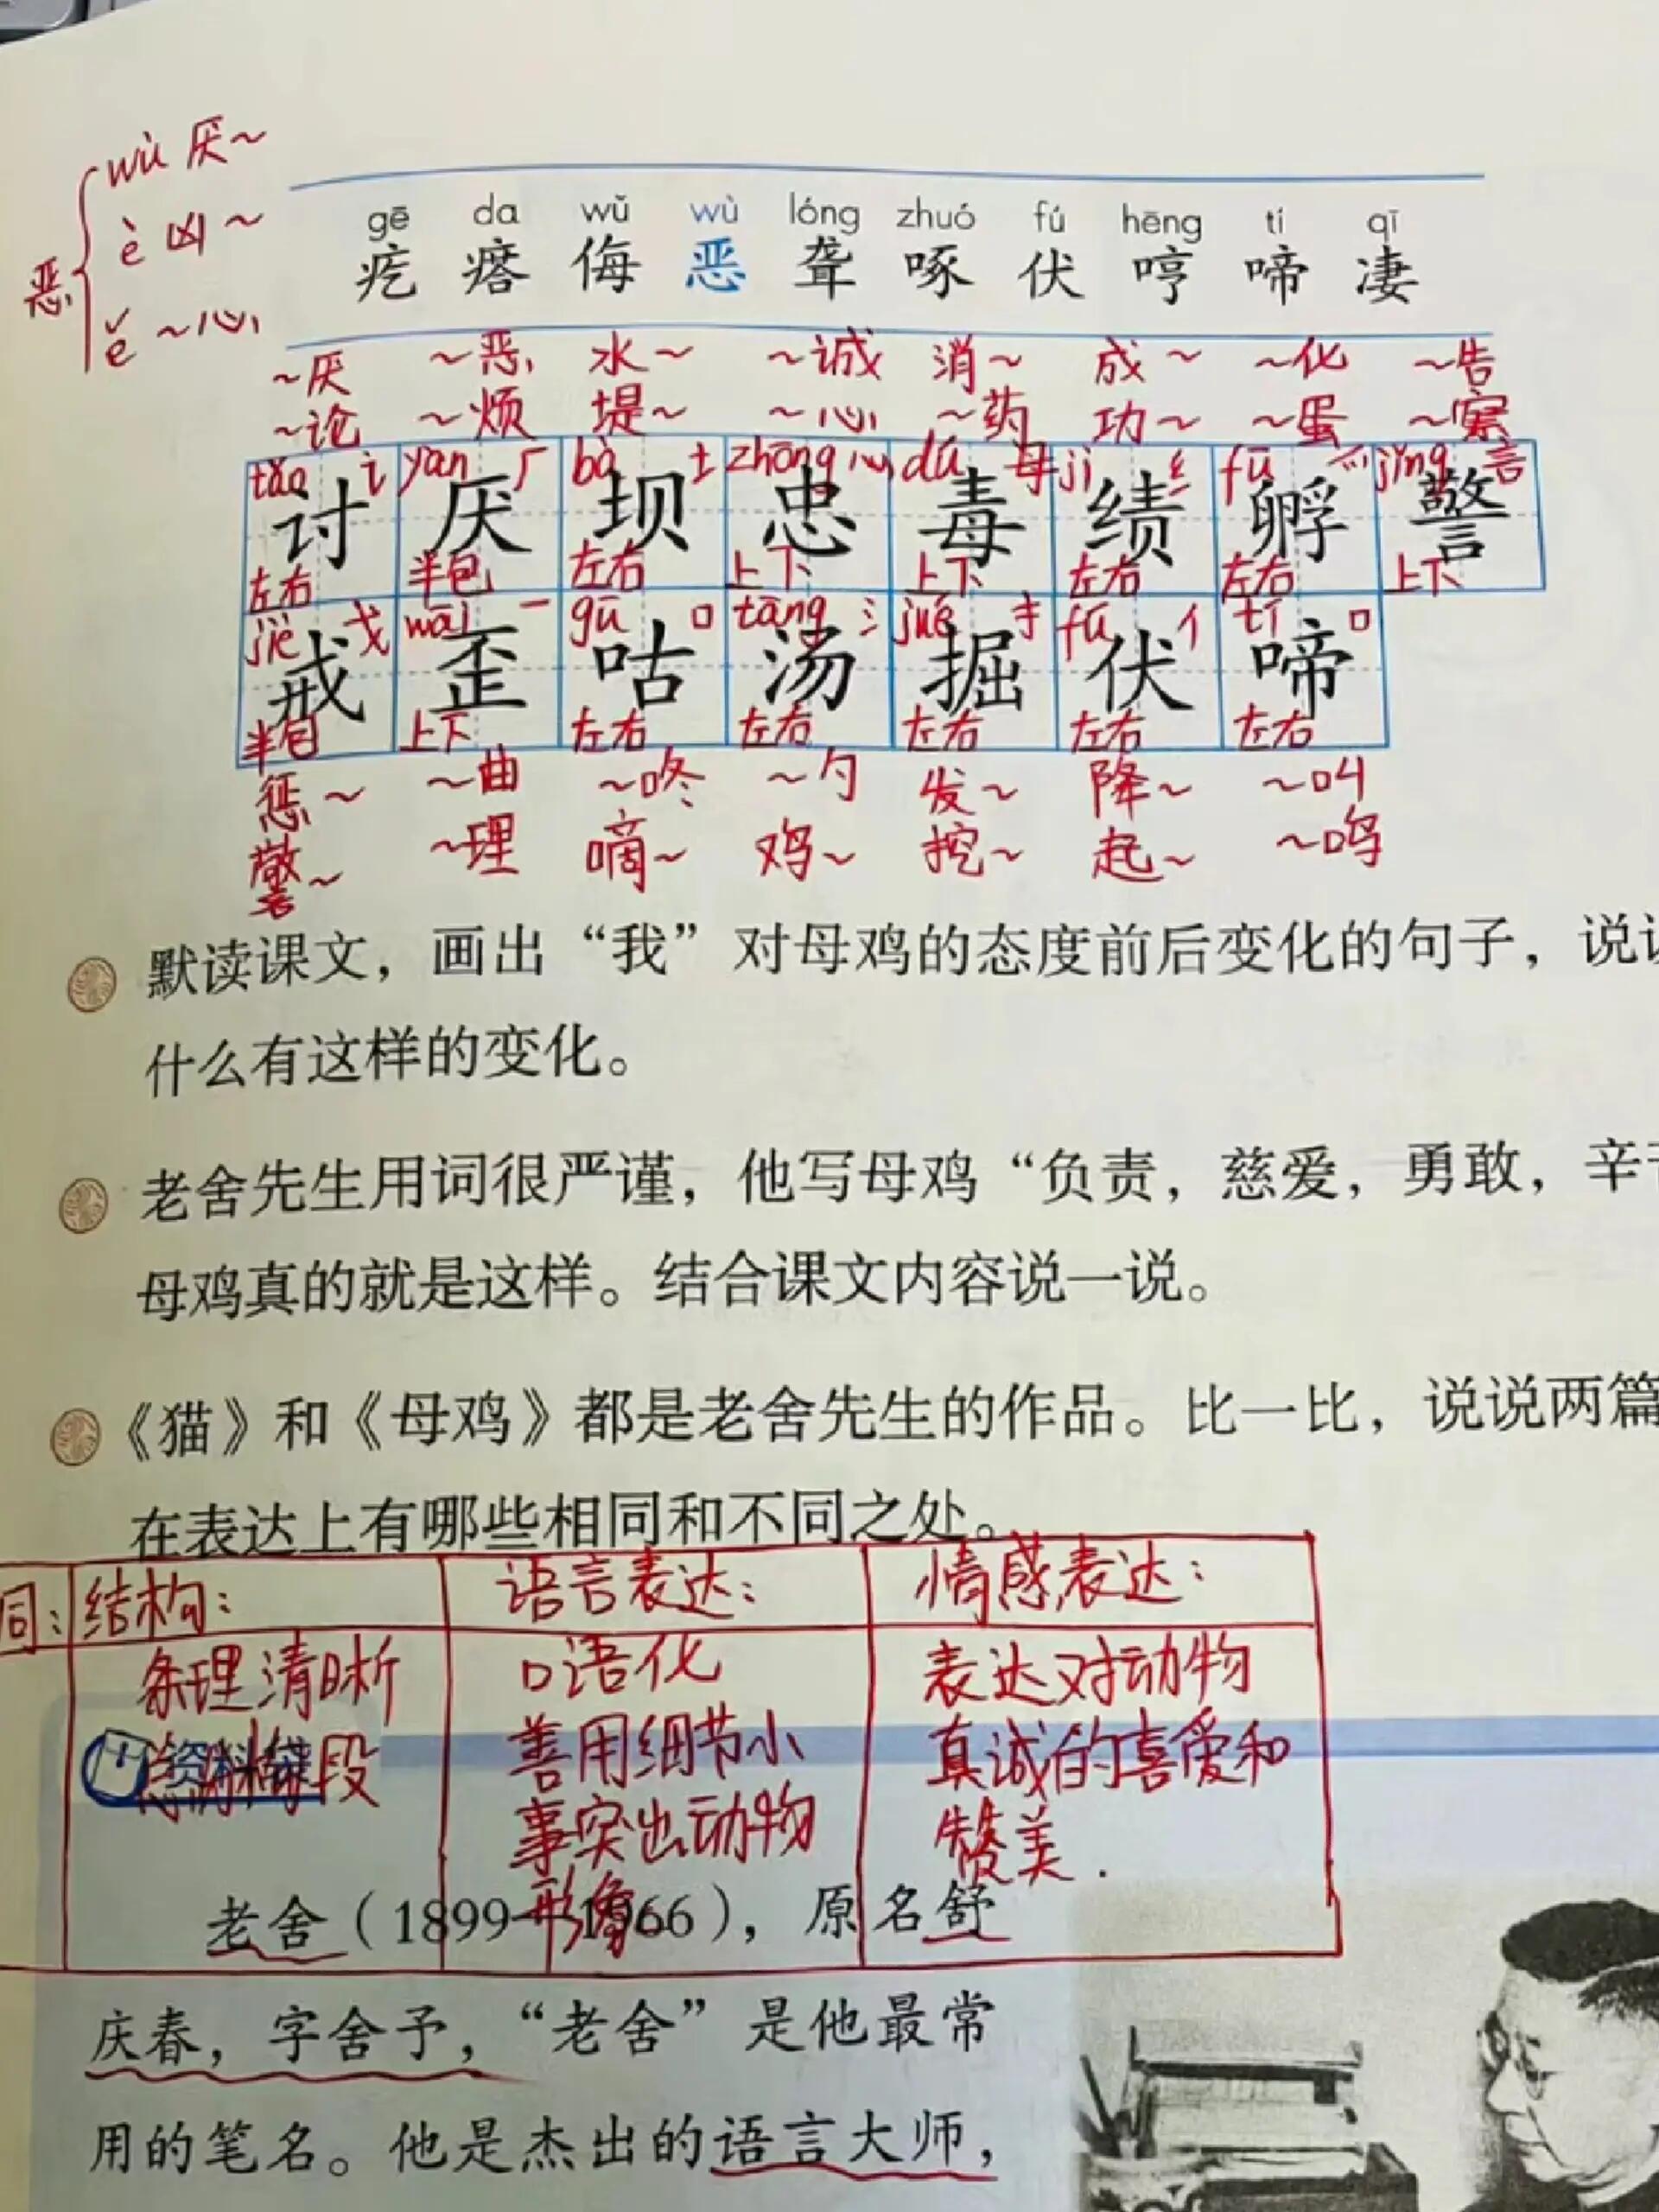 wù 厌~
è 凶~
恶
ě ~心
gē da wǔ wù lóng zhuó fú hēng tí qī
疙 瘩 侮 恶 聋 啄 伏 哼 啼 凄
~厌 ~恶 水~ ~诚 消~ 成~ ~化 ~告
~论 ~烦 堤~ ~心 ~药 功~ ~蛋 ~察
tǎo 讠 yàn 厂 bà 土 zhōng 心 dú 母 jì 纟 fū 爫 jǐng 言
讨 厌 坝 忠 毒 绩 孵 警
左右 半包 左右 上下 上下 左右 左右 上下
jiè 戈 wāi 一 gū 口 tāng 氵 jué 扌 fú 亻 tí 口
戒 歪 咕 汤 掘 伏 啼
半包 上下 左右 左右 左右 左右 左右
惩~ ~曲 ~咚 ~勺 发~ 降~ ~叫
警~ ~理 嘀~ 鸡~ 挖~ 起~ ~鸣
默读课文，画出“我”对母鸡的态度前后变化的句子，说
什么有这样的变化。
老舍先生用词很严谨，他写母鸡“负责，慈爱，勇敢，辛
母鸡真的就是这样。结合课文内容说一说。
《猫》和《母鸡》都是老舍先生的作品。比一比，说说两篇
在表达上有哪些相同和不同之处。
同： 结构： 语言表达： 情感表达：
条理清晰 口语化 表达对动物
段 善用细节小 真诚的喜爱和
资料袋
事突出动物 赞美.
形象
老舍（1899—1966），原名舒
庆春，字舍予，“老舍”是他最常
用的笔名。他是杰出的语言大师，